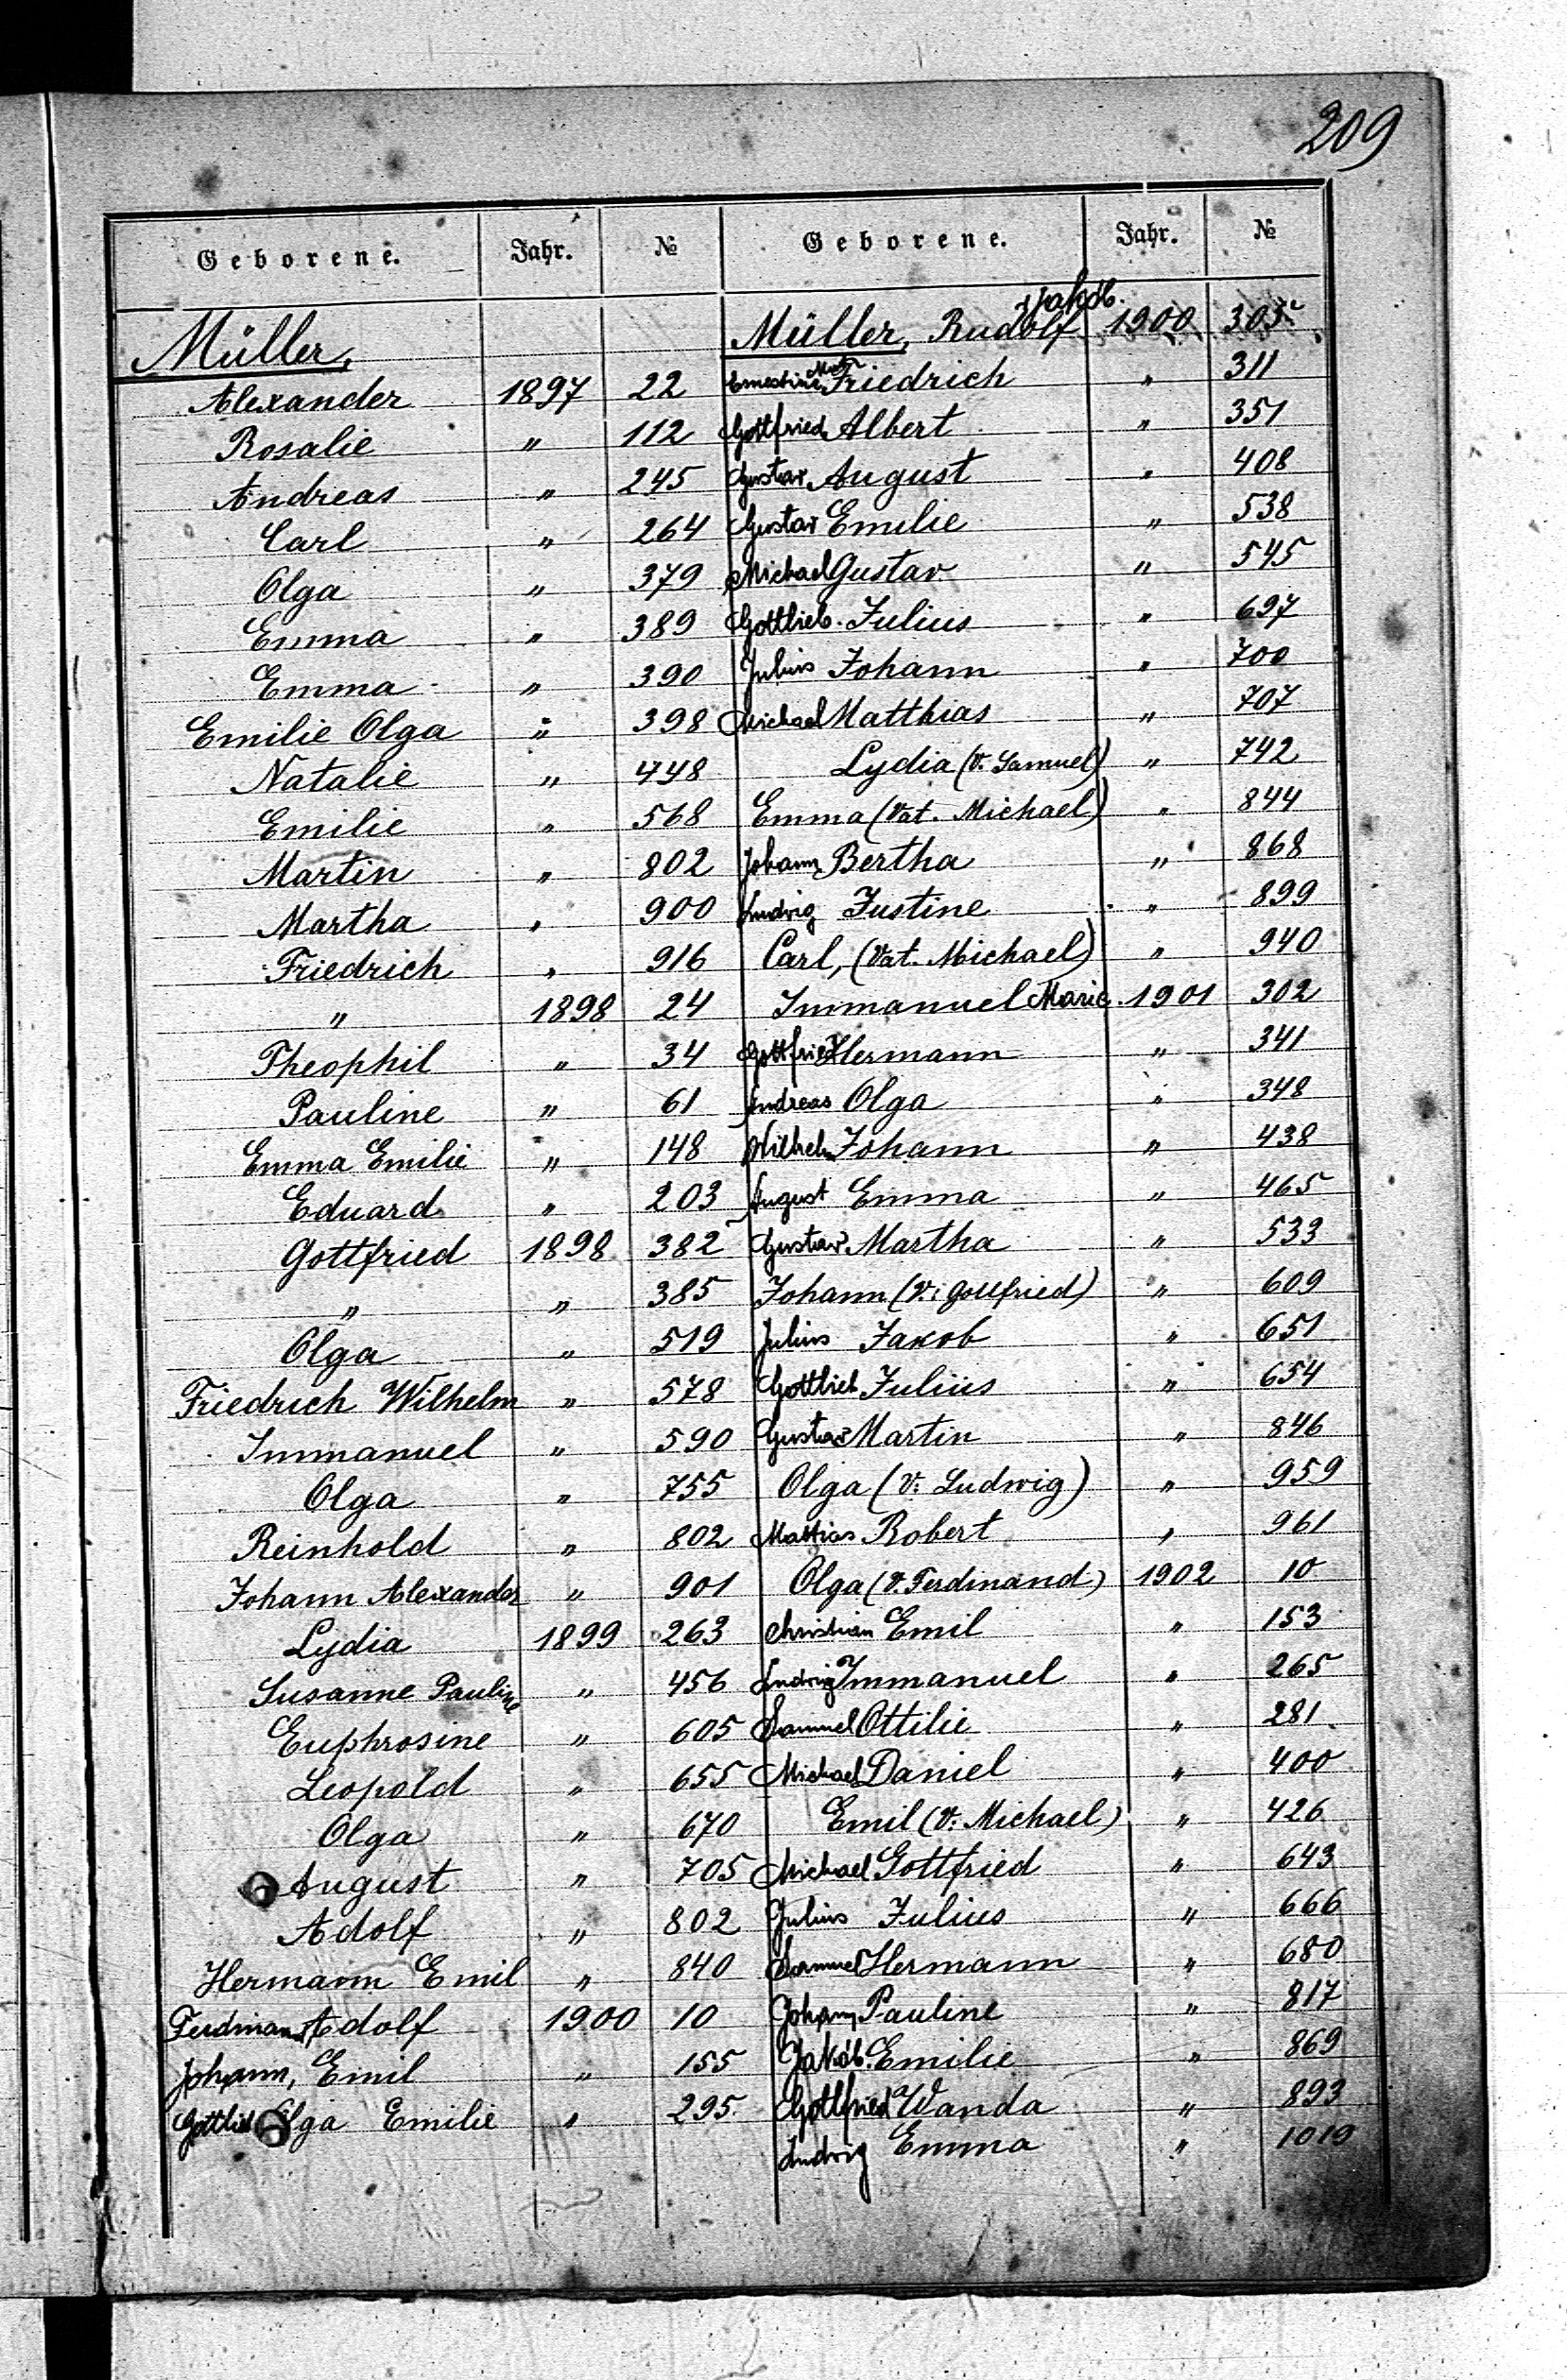 209
Geborene. Jahr. № Geborene. Jahr. №
Müller, Müller, Rudolf Jakob. 1900 305
Alexander 1897 22 Ernestine Friedrich " 311
Rosalie " 112 Gottfried Albert " 351
Andreas " 245 Gustav August " 408
Carl " 264 Gustav Emilie " 538
Olga " 379 Michael Gustav " 545
Emma " 389 Gottlieb. Julius " 697
Emma " 390 Julius Johann " 700
Emilie Olga " 398 Michael Matthias " 707
Natalie " 448 Lydia (V. Samuel) " 742
Emilie " 568 Emma (Vat. Michael) " 844
Martin " 802 Johann Bertha " 868
Martha " 900 Ludwig Justine " 899
Friedrich " 916 Carl, (Vat. Michael) " 940
" 1898 24 Immanuel Marie 1901 302
Theophil " 34 Gottfried Hermann " 341
Pauline " 61 Andreas Olga " 348
Emma Emilie " 148 Wilhelm Johann " 438
Eduard " 203 August Emma " 465
Gottfried 1898 382 Gustav Martha " 533
" " 385 Johann (V: Gottfried) " 609
Olga " 519 Julius Jakob " 651
Friedrich Wilhelm " 578 Gottlieb Julius " 654
Immanuel " 590 Gustav Martin " 846
Olga " 755 Olga (V: Ludwig) " 959
Reinhold " 802 Mattias Robert " 961
Johann Alexander " 901 Olga (V. Ferdinand) 1902 10
Lydia 1899 263 Christian Emil " 153
Susanne Pauline " 456 Ludwig Immanuel " 265
Euphrosine " 605 Samuel Ottilie " 281
Leopold " 655 Michael Daniel " 400
Olga " 670 Emil (V: Michael) " 426
August " 705 Michael Gottfried " 643
Adolf " 802 Julius Julius " 666
Hermann Emil " 840 Samuel Hermann " 680
Ferdinand Adolf 1900 10 Johann Pauline " 817
Johann, Emil " 155 Jakob. Emilie " 869
Gottlieb Olga Emilie " 295 Gottfried Wanda " 893
Ludwig Emma " 1019